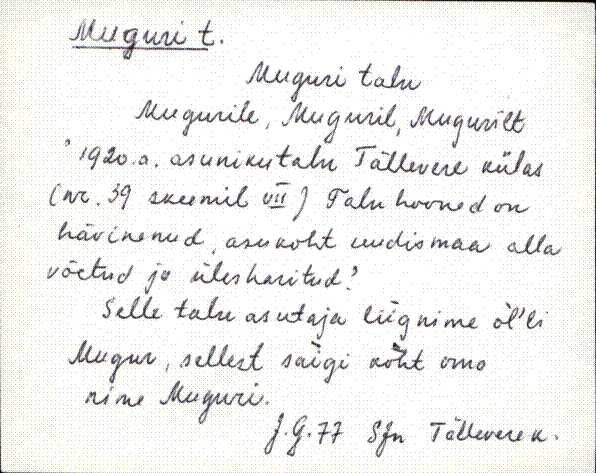 Muguri t.
Muguri talu
Mugurile, Muguril, Mugurilt
"1920.a. asunikutalu Tällevere külas
(nr. 39 skeemil VII) Talu hooned on
hävinenud, asukoht uudismaa alla
võetud ja ülesharitud?
Selle talu asutaja liignime òl'li
Mugur, sellest saigi koht oma
nime Muguri.
J.G.77 SJn Tällevere k.